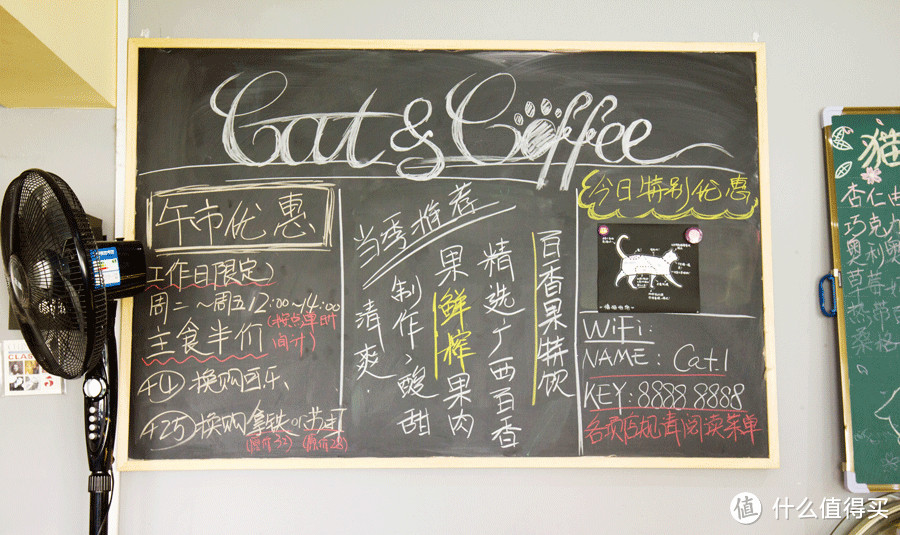 Cat & Coffee
午市优惠
工作日限定
周二～周五12:00～14:00
(按点单时
间计)
主食半价
+4 换购可乐、
+25 换购拿铁or苏打
(原价32) (原价28)
当季推荐
百香果特饮
精选广西百香
果鲜榨果肉
制作、酸甜
清爽.
今日特别优惠
WiFi:
NAME: Cat1
KEY: 8888 8888
各项店规请阅读菜单
猫
杏仁
巧克力
奥利奥
草莓
热带
桑格
值 什么值得买